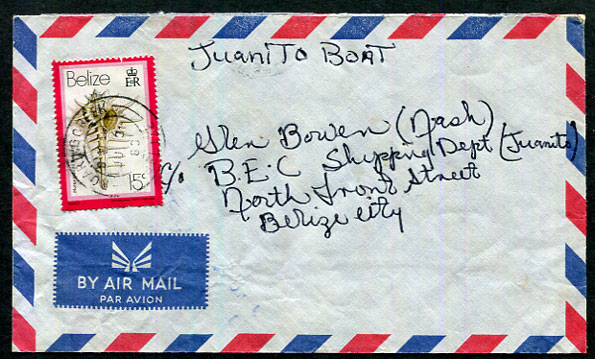 JuaniTO BOAT
Belize
E R
15c
Glen Bowen (Nash)
c/o B.E.C Shypping Dept. (Juanito)
North Front Street
Belize City
BY AIR MAIL
PAR AVION